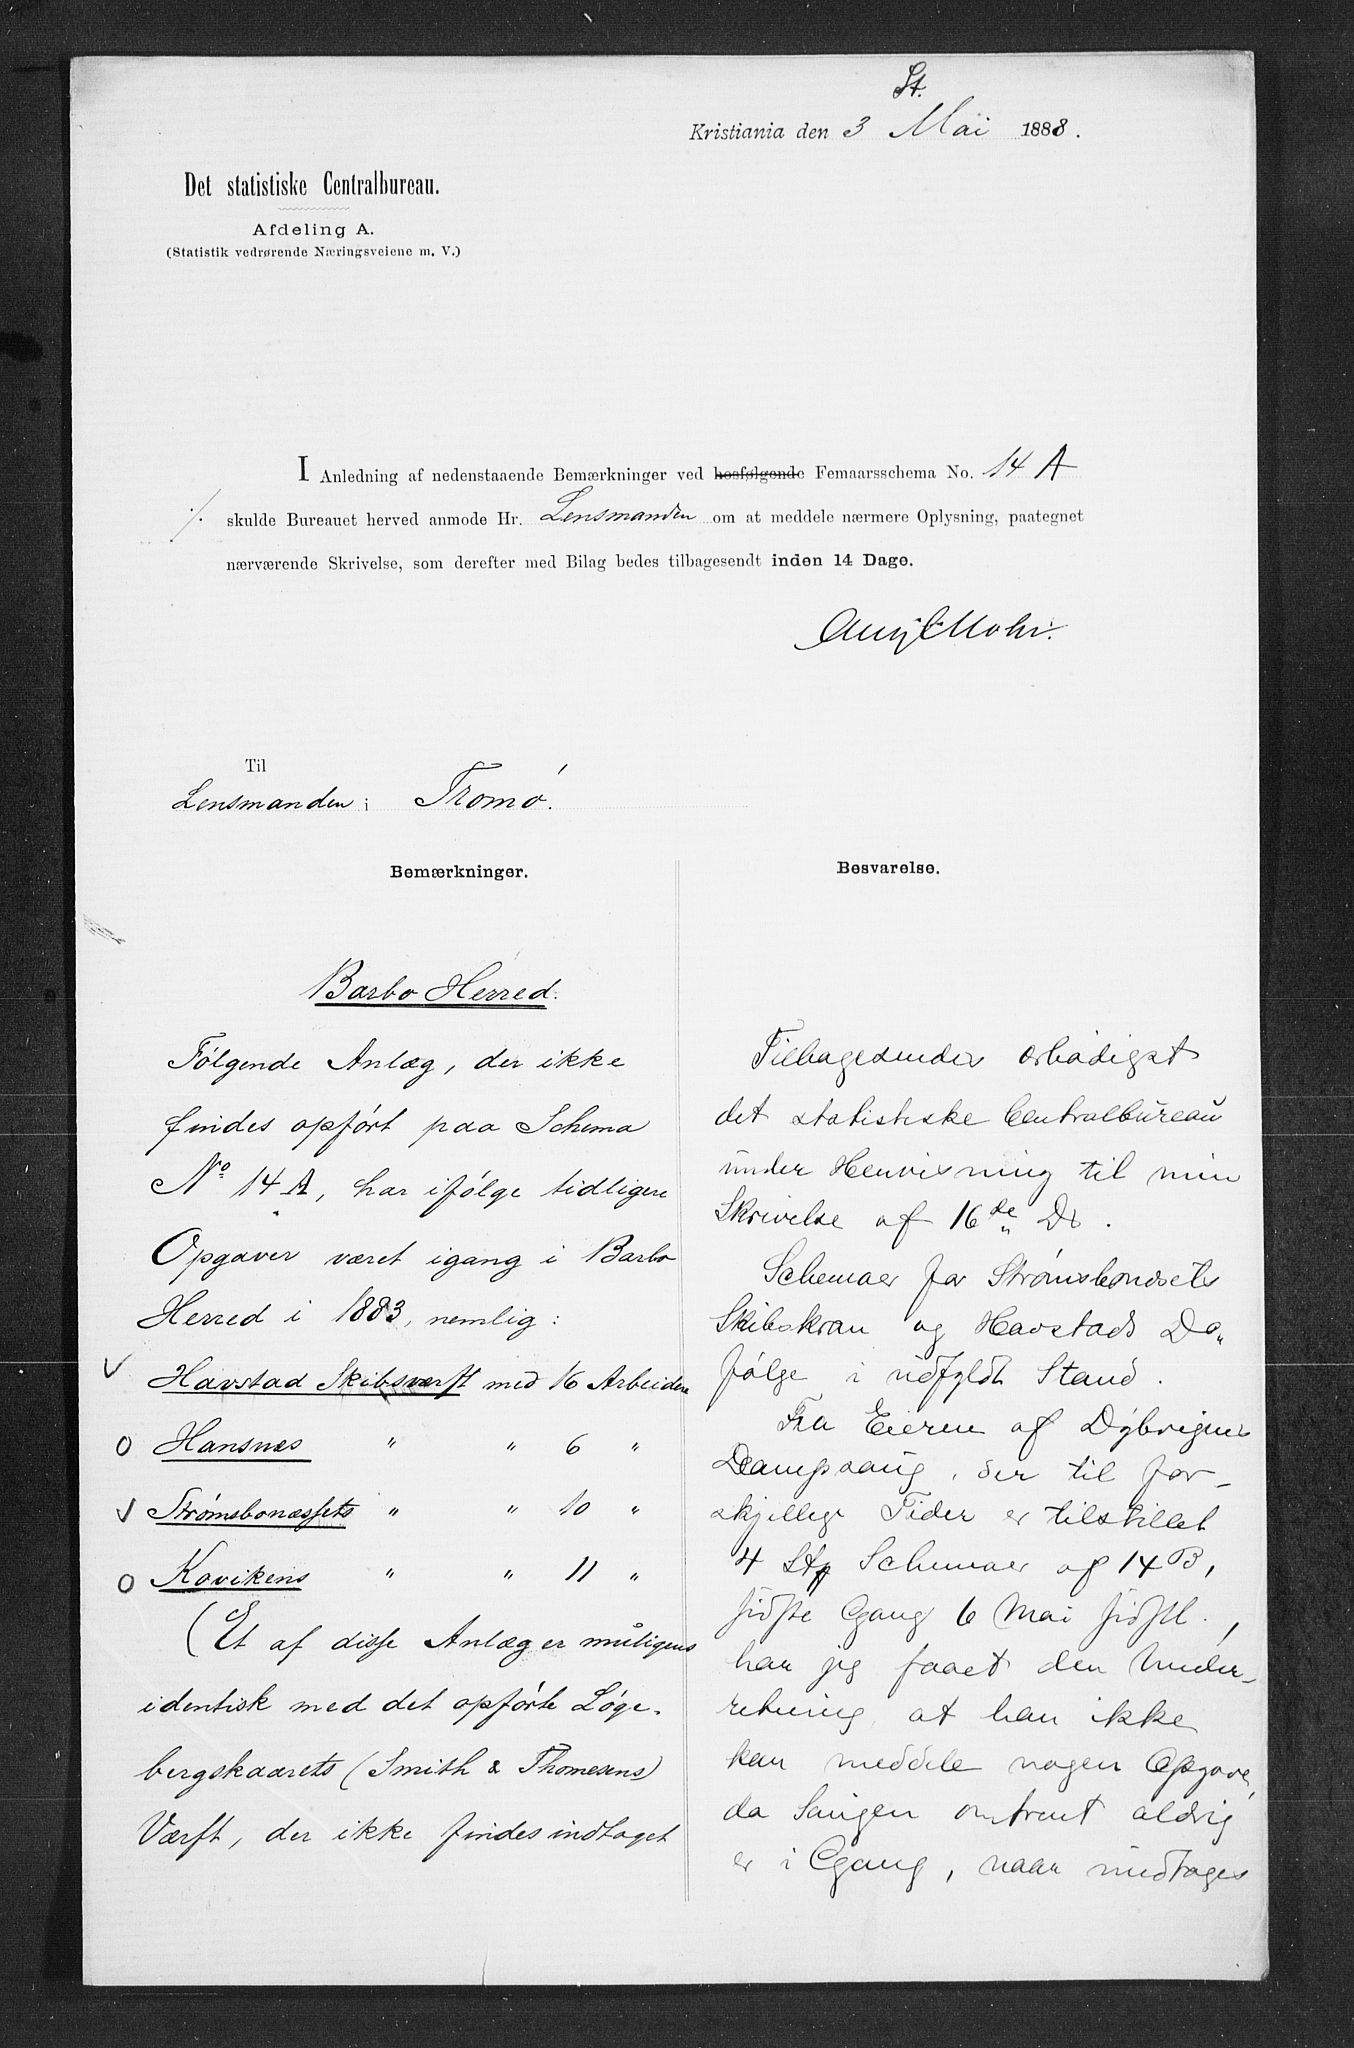 St.
Kristiania den 3 Mai 1888.
Det statistiske Centralbureau.
Afdeling A.
(Statistik vedrørende Næringsveiene m. V.)
I Anledning af nedenstaaende Bemærkninger ved hosfølgende Femaarsschema No. 14 A
./. skulde Bureauet herved anmode Hr. Lensmanden om at meddele nærmere Oplysning, paategnet
nærværende Skrivelse, som derefter med Bilag bedes tilbagesendt inden 14 Dage.
Mohr.
Til
Lensmanden i Tromø.
Bemærkninger.
Barbo Herred.
Følgende Anlæg, der ikke
findes opført paa Schema
No 14 A, har ifølge tidligere
Opgaver været igang i Barbo
Herred i 1883, nemlig:
Havstad Skibsværft med 16 Arbeidere
Hansnæs " " 6 "
Strømsbonæssets " " 10 "
Kovikens " " 11 "
(Et af disse Anlæg er muligens
identisk med det opførte Løge-
bergskaarets (Smith & Thomesens)
Værft, der ikke findes indtaget
Besvarelse.
Tilbagesendes ærbødigst
det statistiske Centralbureau
under Henvisning til min
Skrivelse af 16de Ds.
Schemaer for Strømsbonæsets
Skibskran og Havstads Do.
følge i udfyldt Stand.
Fra Eieren af Dybvigens
Dampsaug, der til for-
skjellige Tider er tilstillet
4 Stk Schemaer af 14 B,
sidste Gang 6 Mai sidstl.,
har jeg faaet den Under-
retning, at han ikke
kan meddele nogen Opgave,
da Saugen omtrent aldrig
er i Gang, naar undtages